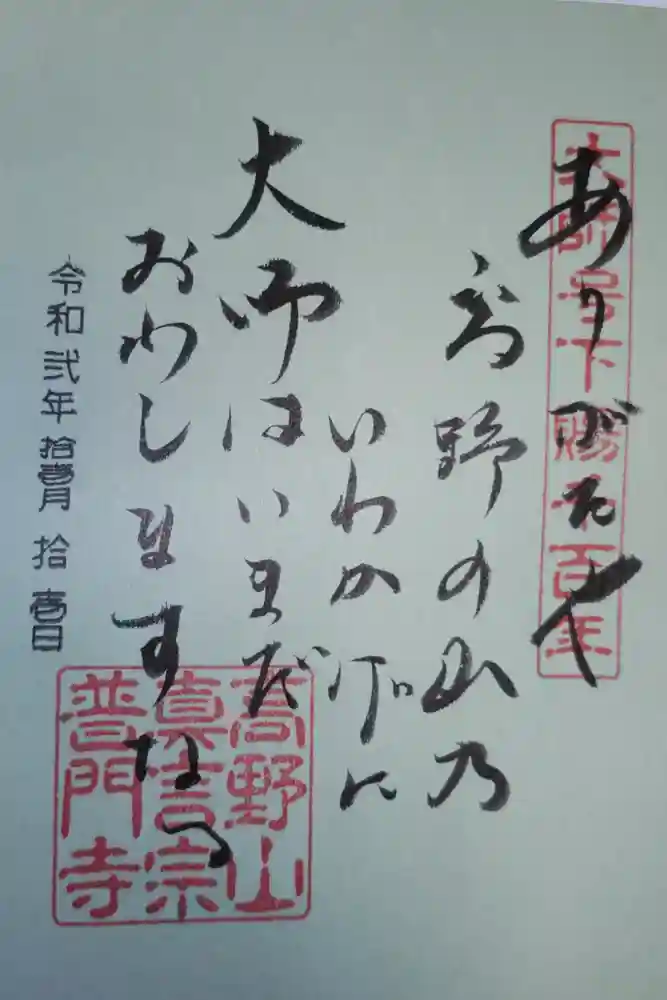 大師号下賜千百年
ありがたや
高野の山乃
いわかげに
大師はいまだ
おわしますなる
令和弐年拾壹月拾壹日
高野山
真言宗
普門寺